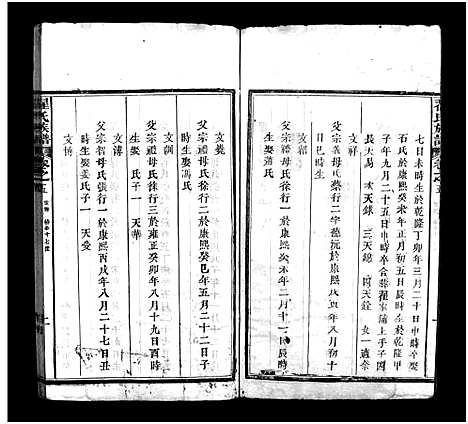 七日未時生於乾隆丁卯年三月二十日申時卒娶
石氏於康熙癸未年正月初五日辰時生於乾隆甲
子年九月二十五日申時卒合葬羅家蕩上手子四
長天易 次天錫 三天錦 四天錄 女一適秦
文義
父宗義母氏蔡行二字德沅於康熙庚寅年八月初十
日巳時生娶
父宗禮母氏徐行二於康熙癸未年二月十一日辰時
生娶蕭氏
文燦
父宗禮母氏徐行三於康熙癸巳年五月二十二日子
時生娶馮氏
文訓
父宗智母氏徐行三於雍正癸卯年八月十九日寅時
生娶 氏子一 天華
文博
父宗智母氏張行一於康熙丙戌年八月二十七日丑
時生娶姜氏子一 天受
程氏族譜 卷之五